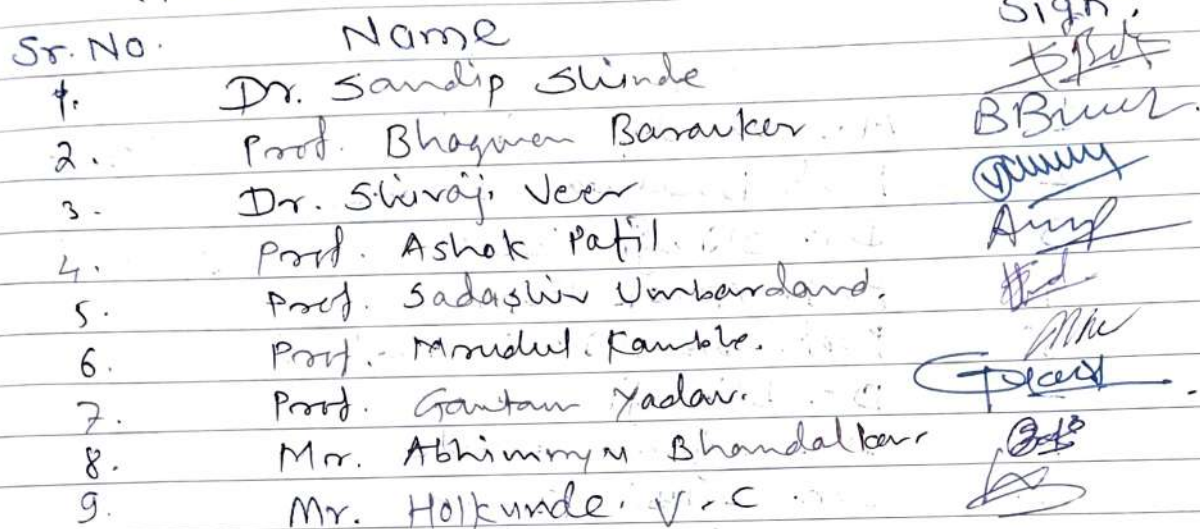 Sr. No. Name Sign.
1. Dr. Sandip Shinde
2. Prof. Bhagwan Barauker
3. Dr. Shivaji Veer
4. Prof. Ashok Patil
5. Prof. Sadashiv Umbardand.
6. Prof. Mrudul Kamble.
7. Prof. Gautam Yadav.
8. Mr. Abhimnyu Bhandalkar
9. Mr. Holkunde. V. C